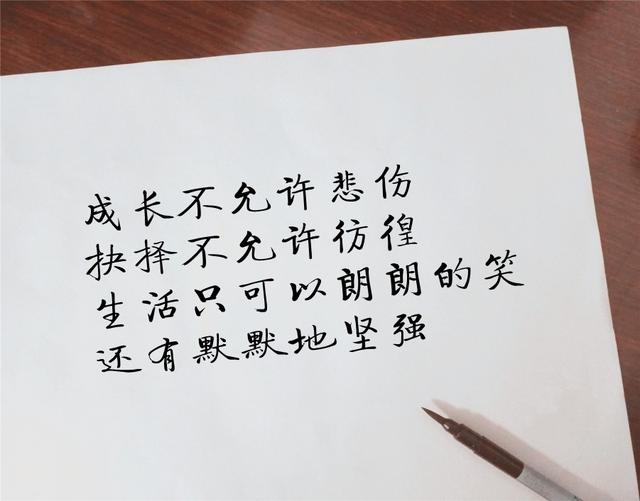 成长不允许悲伤
抉择不允许彷徨
生活只可以朗朗的笑
还有默默地坚强